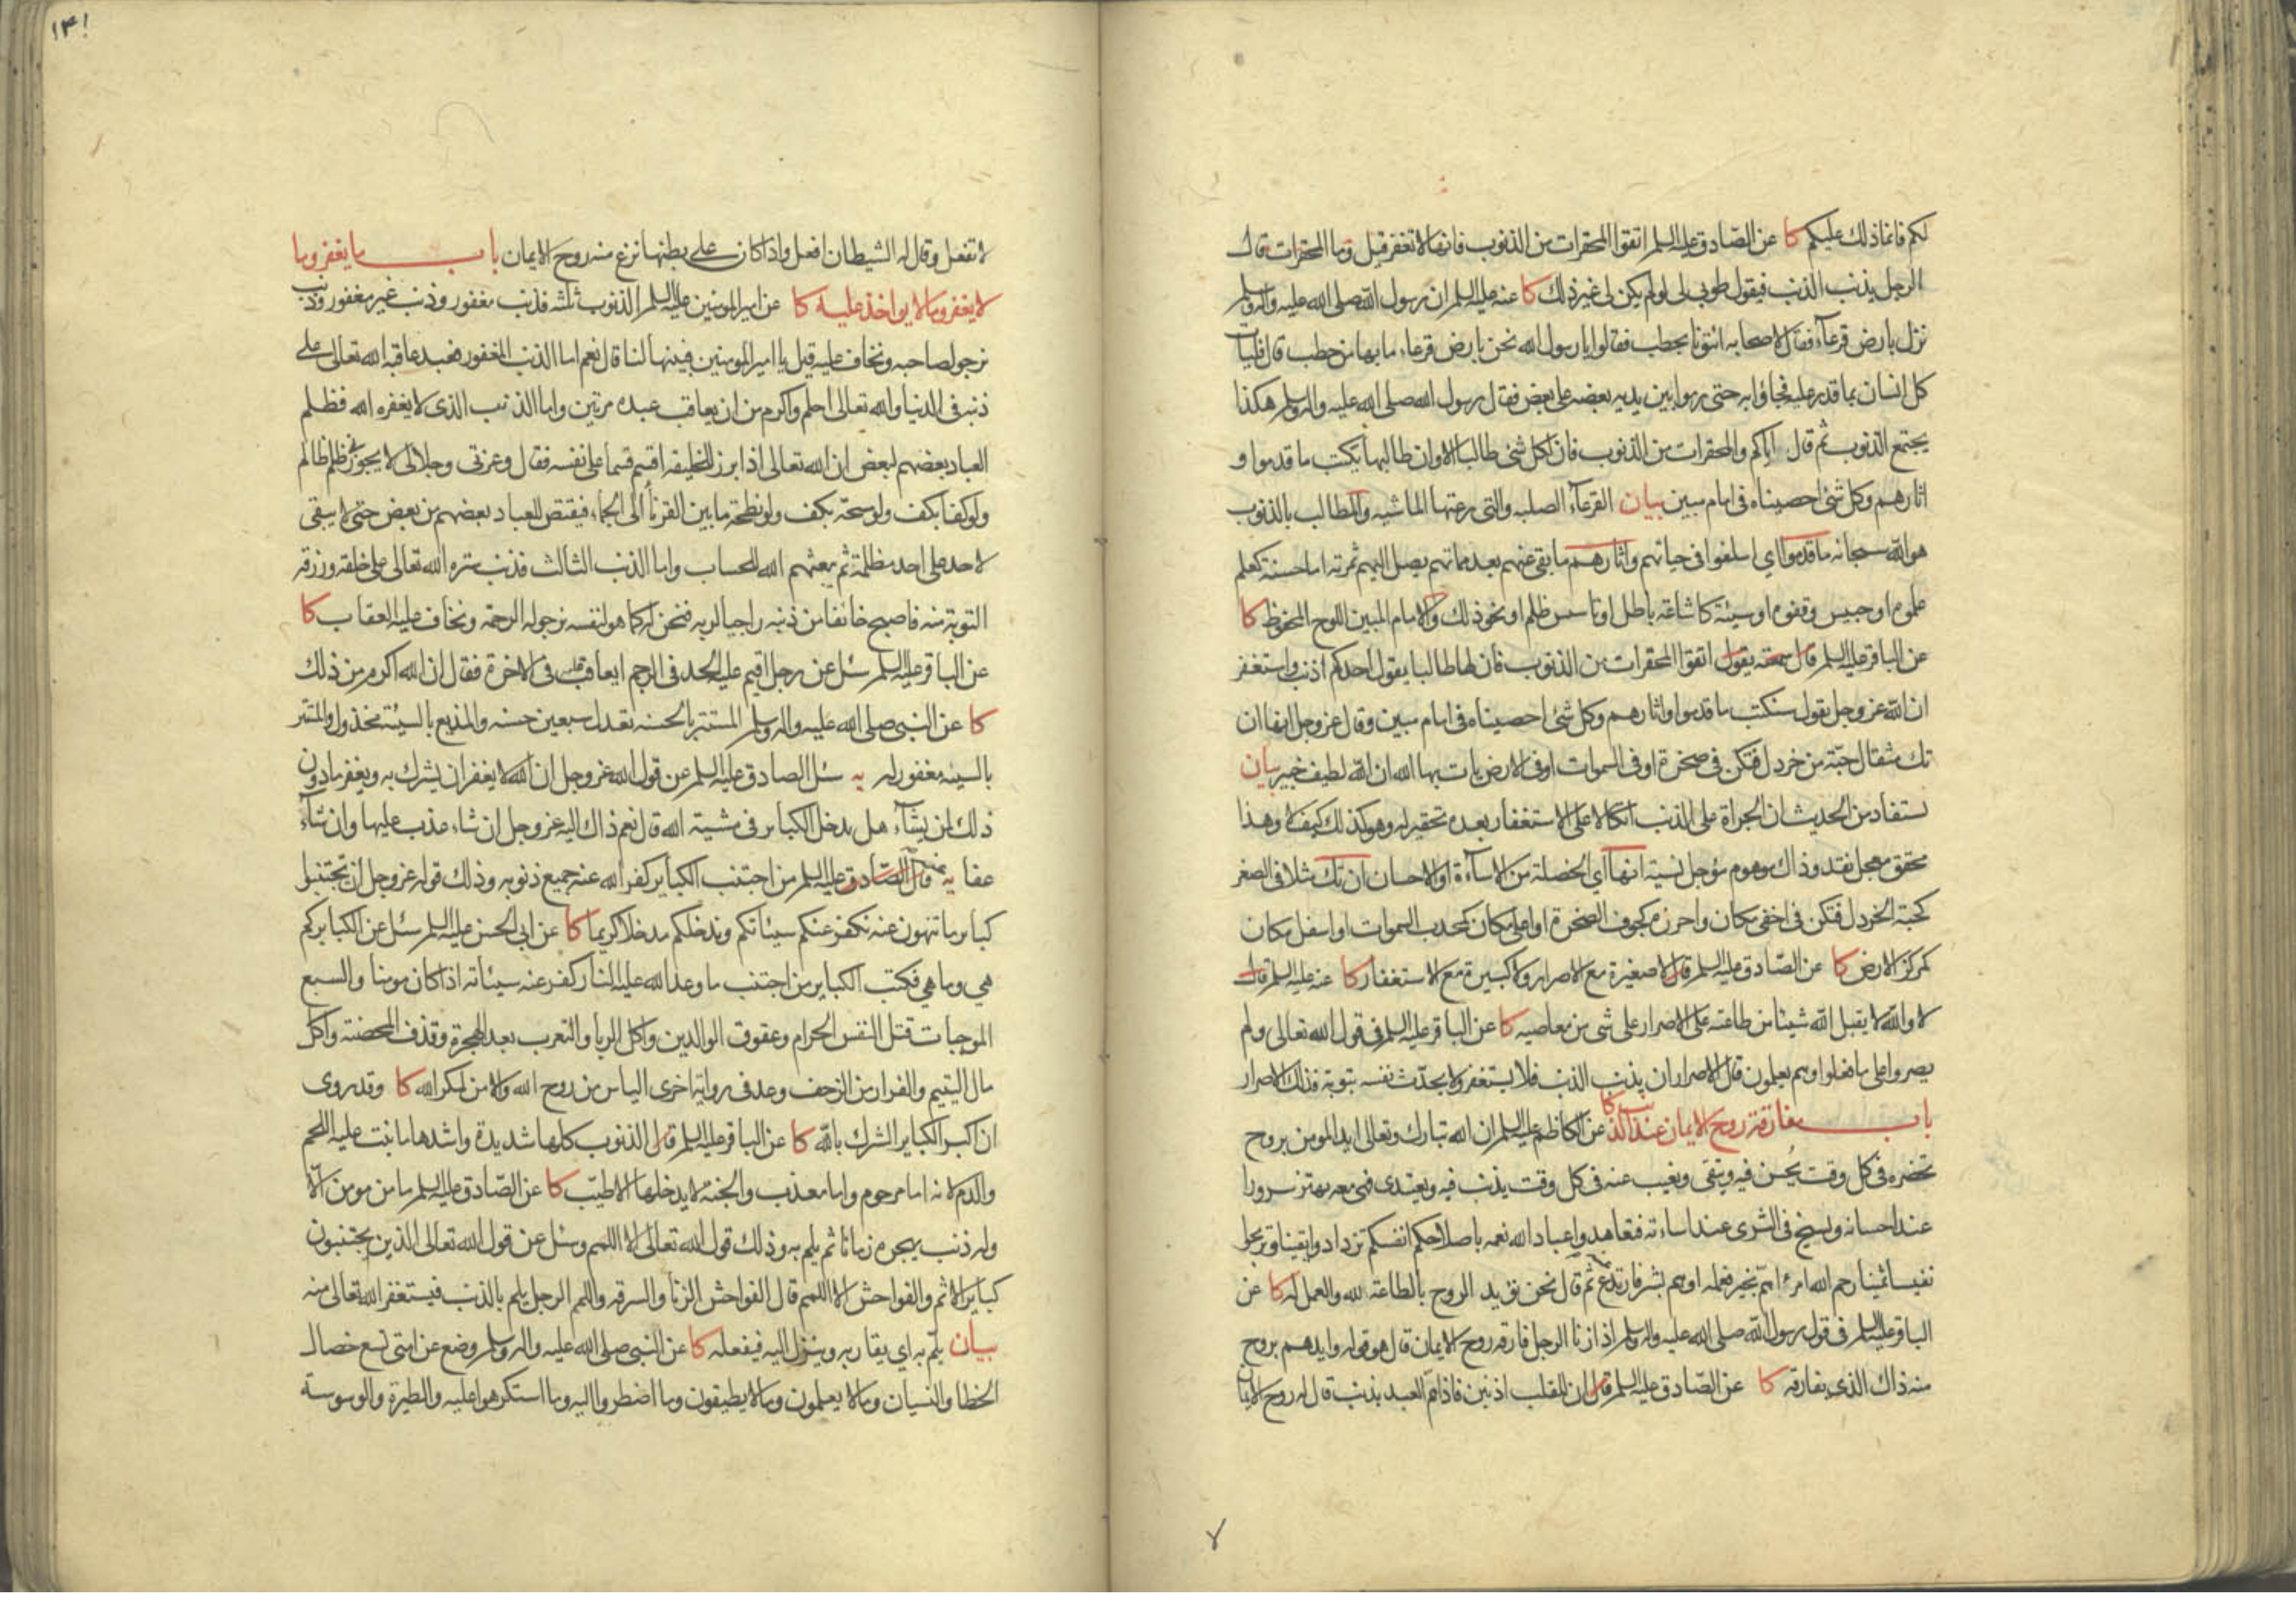 لكم فانما ذلك عليكم كا عن الصادق عليه السلم اتقوا المحقرات من الذنوب فانها لا تغفر قيل وما المحقرات قال
الرجل يذنب الذنب فيقول طوبى لى لو لم يكن لى غير ذلك كا عنه عليه السلم ان رسول الله صلى الله عليه واله وسلم
نزل بارض قرعآء فقال لاصحابه ائتونا بحطب فقالوا يا رسول الله نحن بارض قرعاء ما بها من حطب قال فليات
كل انسان بما قدر عليه فجاؤا به حتى رموا بين يديه بعضه على بعض فقال رسول الله صلى الله عليه واله وسلم هكذا
يجتمع الذنوب ثم قال اياكم والمحقرات من الذنوب فان لكل شئ طالبا الا وان طالبها يكتب ما قدموا و
اثارهم وكل شئ احصيناه فى امام مبين بيان القرعآء الصلبه والتى رعتها الماشيه والطالب بالذنوب
هو الله سبحانه ما قدموا اي اسلفوا فى حياتهم واثارهم ما بقى عنهم بعد مماتهم يصل اليهم ثمرته اما حسنة كعلم
علموه او حبيس وقفوه او سيئة كاشاعة باطل او تاسيس ظلم او نحو ذلك والامام المبين اللوح المحفوظ كا
عن الباقر عليه السلم قال سمعته يقول اتقوا المحقرات من الذنوب فان لها طالبا يقول احدكم اذنب واستغفر
ان الله عز وجل يقول سنكتب ما قدموا واثارهم وكل شئ احصيناه فى امام مبين وقال عز وجل انها ان
تك مثقال حبة من خردل فتكن فى صخرة او فى السموات او فى الارض يات بها الله ان الله لطيف خبير بيان
نستفاد من الحديث ان الجراة على الذنب اتكالا على الاستغفار بعده تحقير له وهو كذلك كيف لا وهذا
محقق معجل نقد وذاك موهوم مؤجل نسية انها اي الخصلة من الاساءة او الاحسان ان تك مثلا فى الصغر
كحبة الخردل فتكن فى اخفى مكان واحرزه كجوف الصخرة او اعلى مكان كمحدب السموات او اسفل مكان
كمركز الارض كا عن الصادق عليه السلم قال لا صغيرة مع الاصرار ولا كبيرة مع الاستغفار كا عنه عليه السلم قال
لا والله لا يقبل الله شيئا من طاعته على الاصرار على شى من معاصيه كا عن الباقر عليه السلم فى قول الله تعالى ولم
يصروا على ما فعلوا وهم يعلمون قال الاصرار ان يذنب الذنب فلا يستغفر ولا يحدث نفسه بتوبة فذلك الاصرار
باب مفارقة روح الايمان عند الذنب كا عن الكاظم عليه السلم ان الله تبارك وتعالى ايد المومن بروح
تحضره فى كل وقت يحسن فيه ويتقى ويغيب عنه فى كل وقت يذنب فيه ويعتدى فهى معه تهتز سرورا
عند احسانه وتسيخ فى الثرى عند اساءته فتعاهدوا عباد الله نعمه باصلاحكم انفسكم تزدادوا يقينا وتربحوا
نفيسا ثمينا رحم الله امرءا هم بخير فعمله او هم بشر فارتدع عنه ثم قال نحن نؤيد الروح بالطاعة لله والعمل له كا عن
الباقر عليه السلم فى قول رسول الله صلى الله عليه واله وسلم اذا زنا الرجل فارقه روح الايمان قال هو قوله وايدهم بروح
منه ذاك الذى يفارقه كا عن الصادق عليه السلم قال ان للقلب اذنين فاذا هم العبد بذنب قال له روح الايمان
٧
١٣١
لا تفعل وقال له الشيطان افعل واذا كان على بطنها نزع منه روح الايمان باب ما يغفر وما
لا يغفر وما لا يواخذ عليه كا عن امير المومنين عليه السلم الذنوب ثلثه فذنب مغفور وذنب غير مغفور وذنب
نرجو لصاحبه ونخاف عليه قيل يا امير المومنين فبينها لنا قال نعم اما الذنب المغفور فعبد عاقبه الله تعالى على
ذنبه فى الدنيا والله تعالى احلم واكرم من ان يعاقب عبده مرتين واما الذنب الذى لا يغفره الله فظلم
العباد بعضهم لبعض ان الله تعالى اذا برز للخليقه اقسم قسما على نفسه فقال وعزتى وجلالى لا يجوزنى ظلم ظالم
ولو كفا بكف ولو مسحة بكف ولو نطحة ما بين القرنآء الى الجماء فيقتص للعباد بعضهم من بعض حتى لا يبقى
لاحد على احد مظلمة ثم يبعثهم الله للحساب واما الذنب الثالث فذنب ستره الله تعالى على خلقه ورزقه
التوبة منه فاصبح خائفا من ذنبه راجيا لربه فنحن له كما هو لنفسه نرجو له الرحمة ونخاف عليه العقاب كا
عن الباقر عليه السلم سئل عن رجل اقيم عليه الحد فى الرجم ايعاقب عليه فى الاخرة فقال ان الله اكرم من ذلك
كا عن النبى صلى الله عليه واله وسلم المستتر بالحسنه تعدل سبعين حسنه والمذيع بالسيئة مخذول والمستتر
بالسيئه مغفور له يه سئل الصادق عليه السلم عن قول الله عز وجل ان الله لا يغفر ان يشرك به ويغفر ما دون
ذلك لمن يشآء هل يدخل الكبائر فى مشية الله قال نعم ذاك اليه عز وجل ان شاء عذب عليها وان شآء
عفا يه عنه قال الصادق عليه السلم من اجتنب الكباير كفر الله عنه جميع ذنوبه وذلك قوله عز وجل ان تجتنبوا
كباير ما تنهون عنه نكفر عنكم سيئاتكم وندخلكم مدخلا كريما كا عن ابى الحسن عليه السلم سئل عن الكباير كم
هى وما هى فكتب الكباير من اجتنب ما وعد الله عليه النار كفر عنه سيئاته اذا كان مومنا والسبع
الموجبات قتل النفس الحرام وعقوق الوالدين واكل الربا والتعرب بعد الهجرة وقذف المحصنة واكل
مال اليتيم والفرار من الزحف وعد فى رواية اخرى الياس من روح الله والامن لمكر الله كا وقد روى
ان اكبر الكباير الشرك بالله كا عن الباقر عليه السلم قال الذنوب كلها شديدة واشدها ما نبت عليه اللحم
والدم لانه اما مرحوم واما معذب والجنة لا يدخلها الا طيب كا عن الصادق عليه السلم ما من مومن الا
وله ذنب يهجره زمانا ثم يلم به وذلك قول الله تعالى الا اللمم وسئل عن قول الله تعالى الذين يجتنبون
كباير الاثم والفواحش الا اللمم قال الفواحش الزنا والسرقه واللمم الرجل يلم بالذنب فيستغفر الله تعالى منه
بيان يلم به اي يقاربه وينزل اليه فيفعله كا عن النبى صلى الله عليه واله وسلم وضع عن امتى تسع خصال
الخطا والنسيان وما لا يعلمون وما لا يطيقون وما اضطروا اليه وما استكرهوا عليه والطيرة والوسوسة